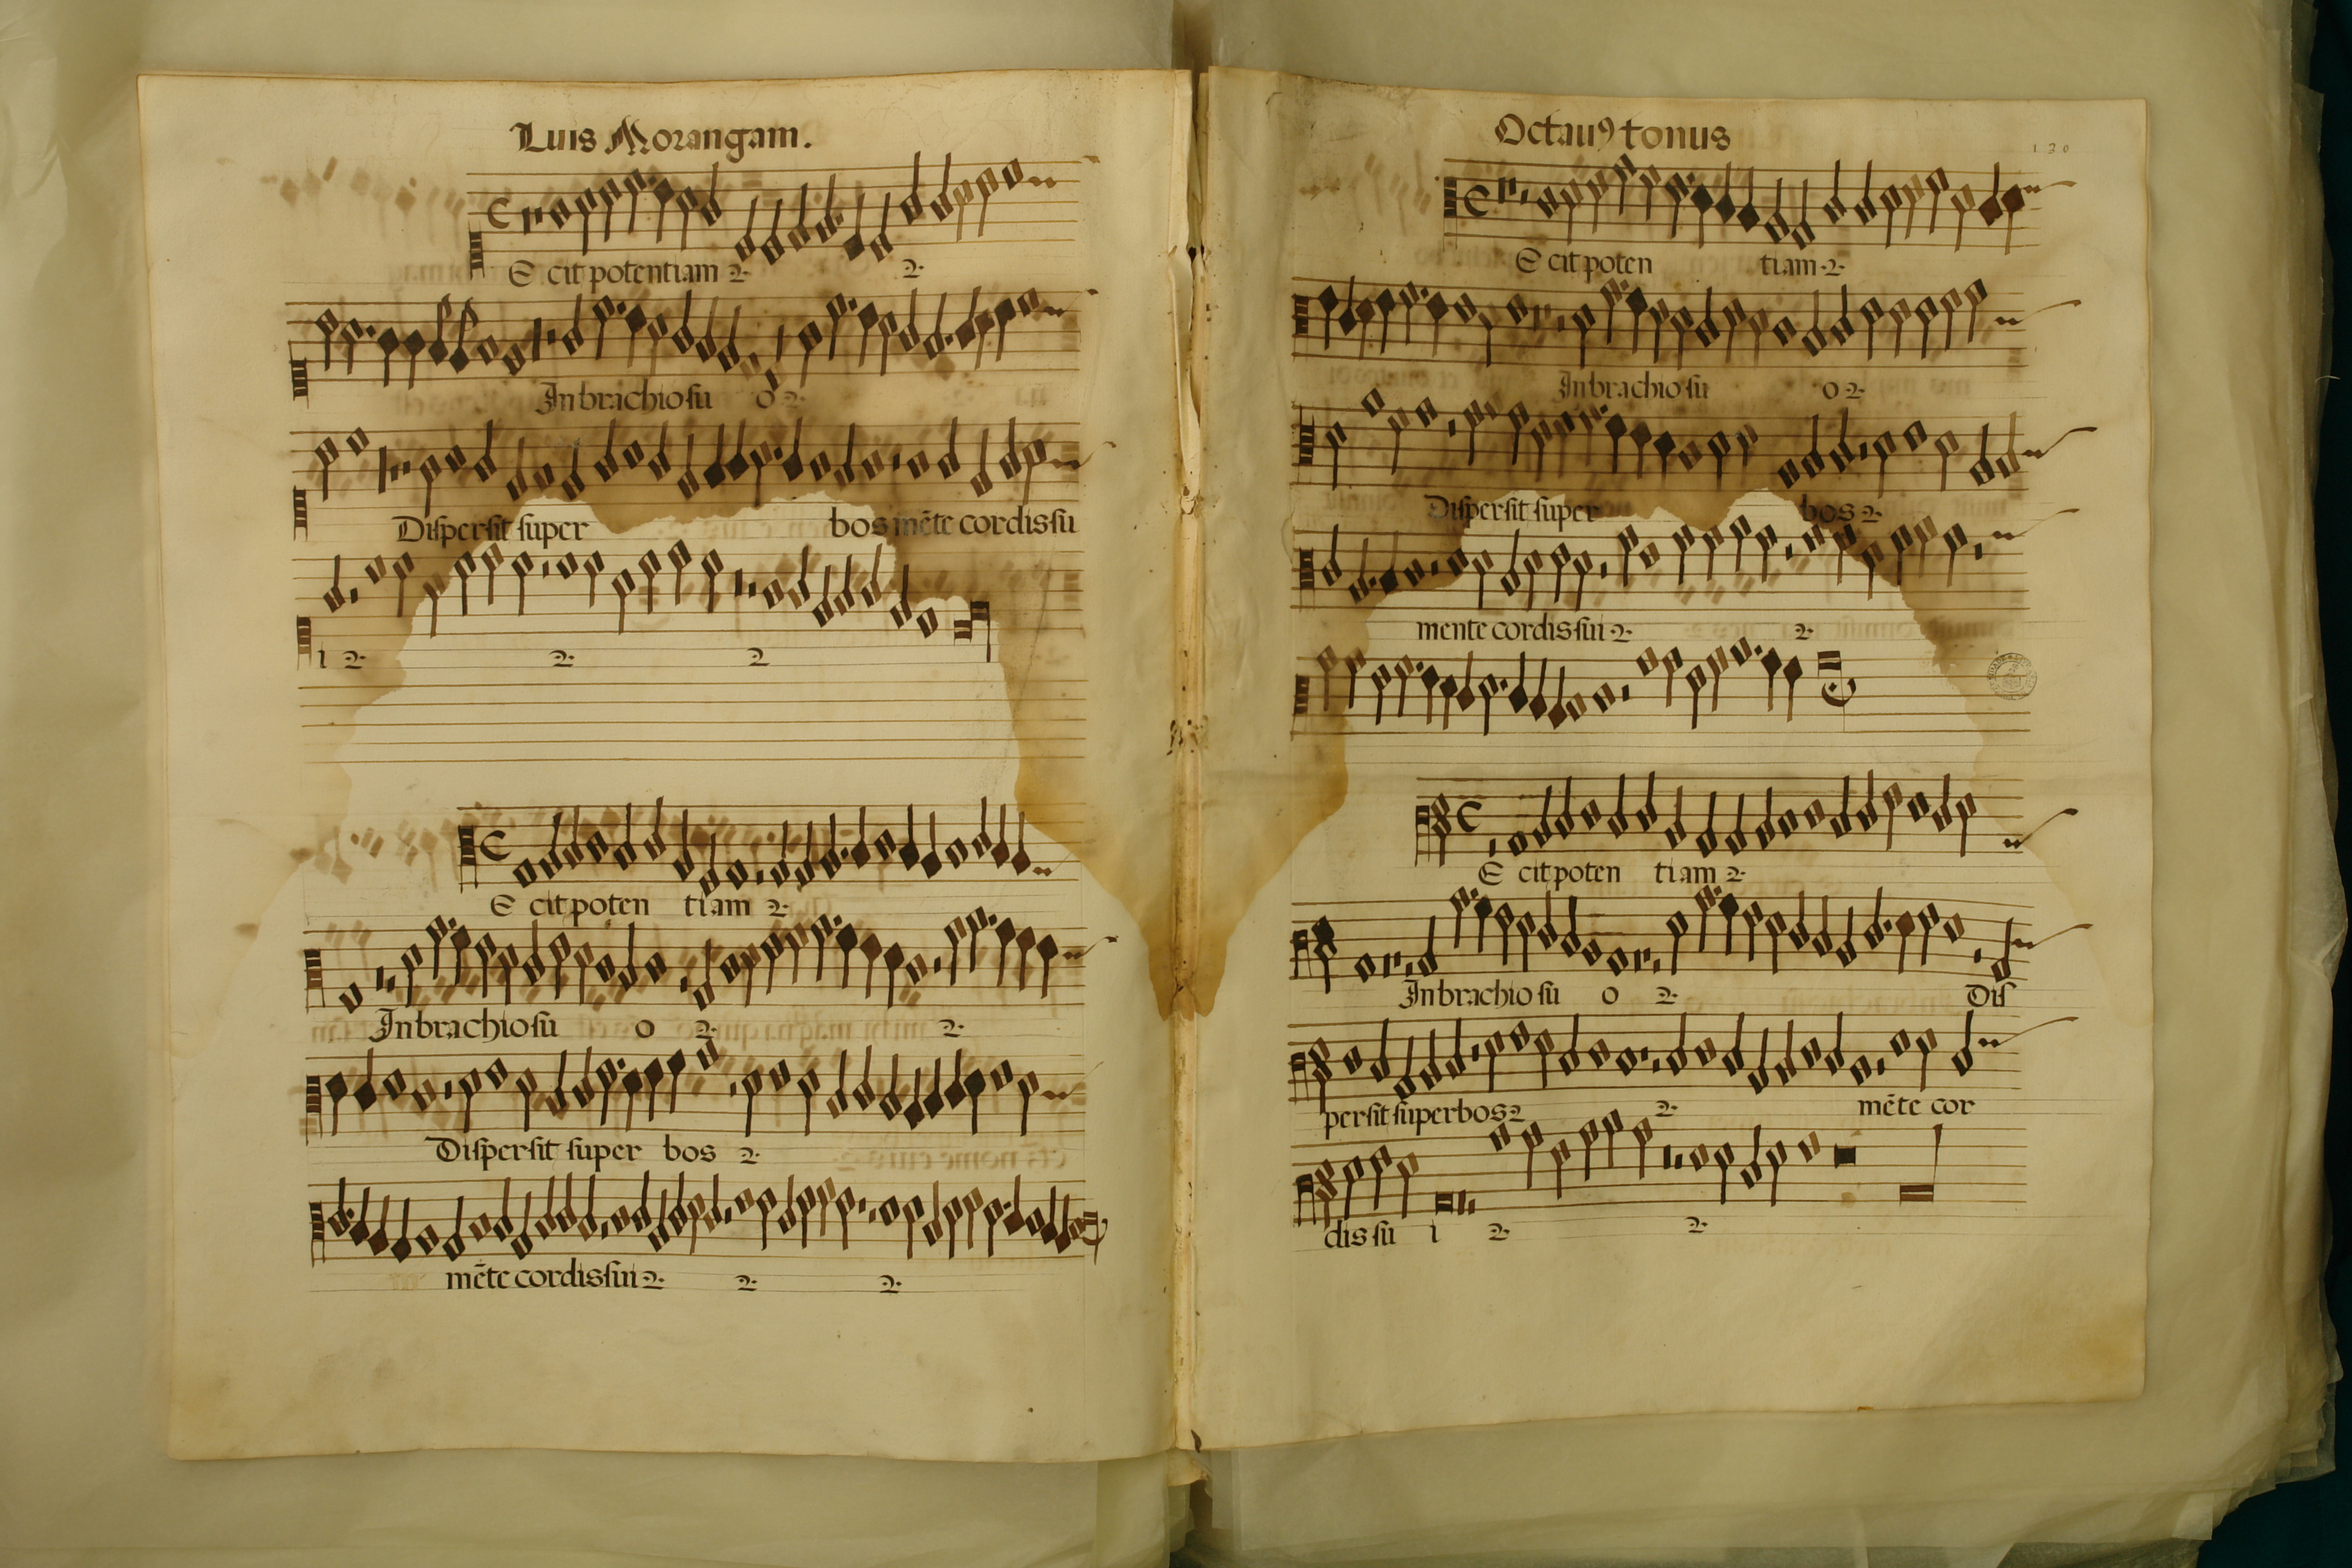 Luis Morangam.
E cit potentiam 2. 2.
In brachio su o 2.
Dispersit super bos mēte cordis su
i 2. 2. 2
E cit poten tiam 2.
In brachio su o 2. 2.
Dispersit super bos 2.
mēte cordis sui 2. 2. 2.
Octauꝰ tonus
120
E cit poten tiam 2.
In brachio su o 2.
Dispersit super bos 2.
mente cordis sui 2. 2.
E cit poten tiam 2.
In brachio su o 2. Dis
persit superbos 2 2. mēte cor
dis su i 2. 2.